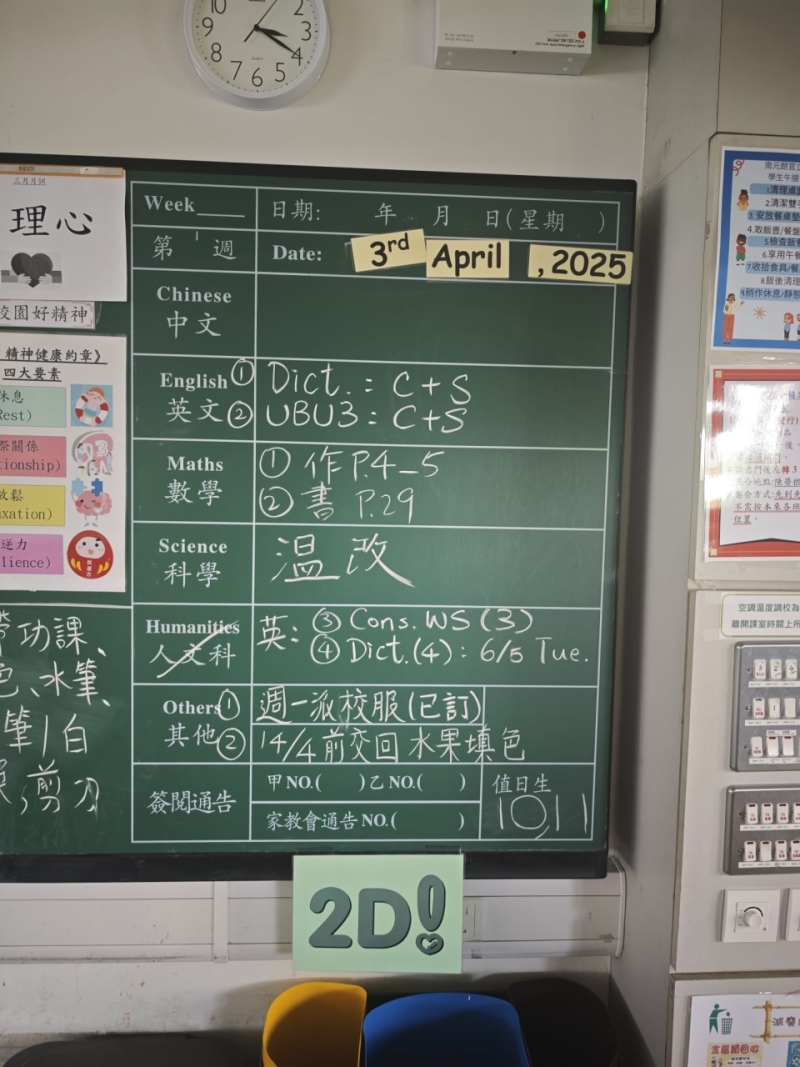 10
2
3
4
5
6
7
8
9
三月月訓
理心
校園好精神
精神健康約章》
四大要素
休息
Rest)
關係
tionship)
放鬆
axation)
逆力
lience)
功課、
色、水筆、
筆/白
,剪刀
Week____
日期: 年 月 日(星期 )
第 週
Date: 3rd April , 2025
Chinese
中文
English ① Dict. : C + S
英文 ② UBU3 : C+S
Maths ① 作 P.4_5
數學 ② 書 P.29
Science
科學
温改
Humanities
人文科
英: ③ Cons. WS (3)
④ Dict.(4) : 6/5 Tue.
Others ① 週一派校服(已訂)
其他 ② 14/4前交回 水果填色
簽閱通告
甲 NO.( ) 乙 NO.( )
家教會通告 NO.( )
值日生
10,11
2D!
學生午膳
1.清理桌
2.清潔雙手
3.安放餐桌墊
4.取飯壺/餐盤
5.檢查飯
6.享用午餐
7.收拾食具/餐
8.飯後清理
9.稍作休息/靜
出門後左轉 3
位置。
空調温度調校為
離開課室時關上所